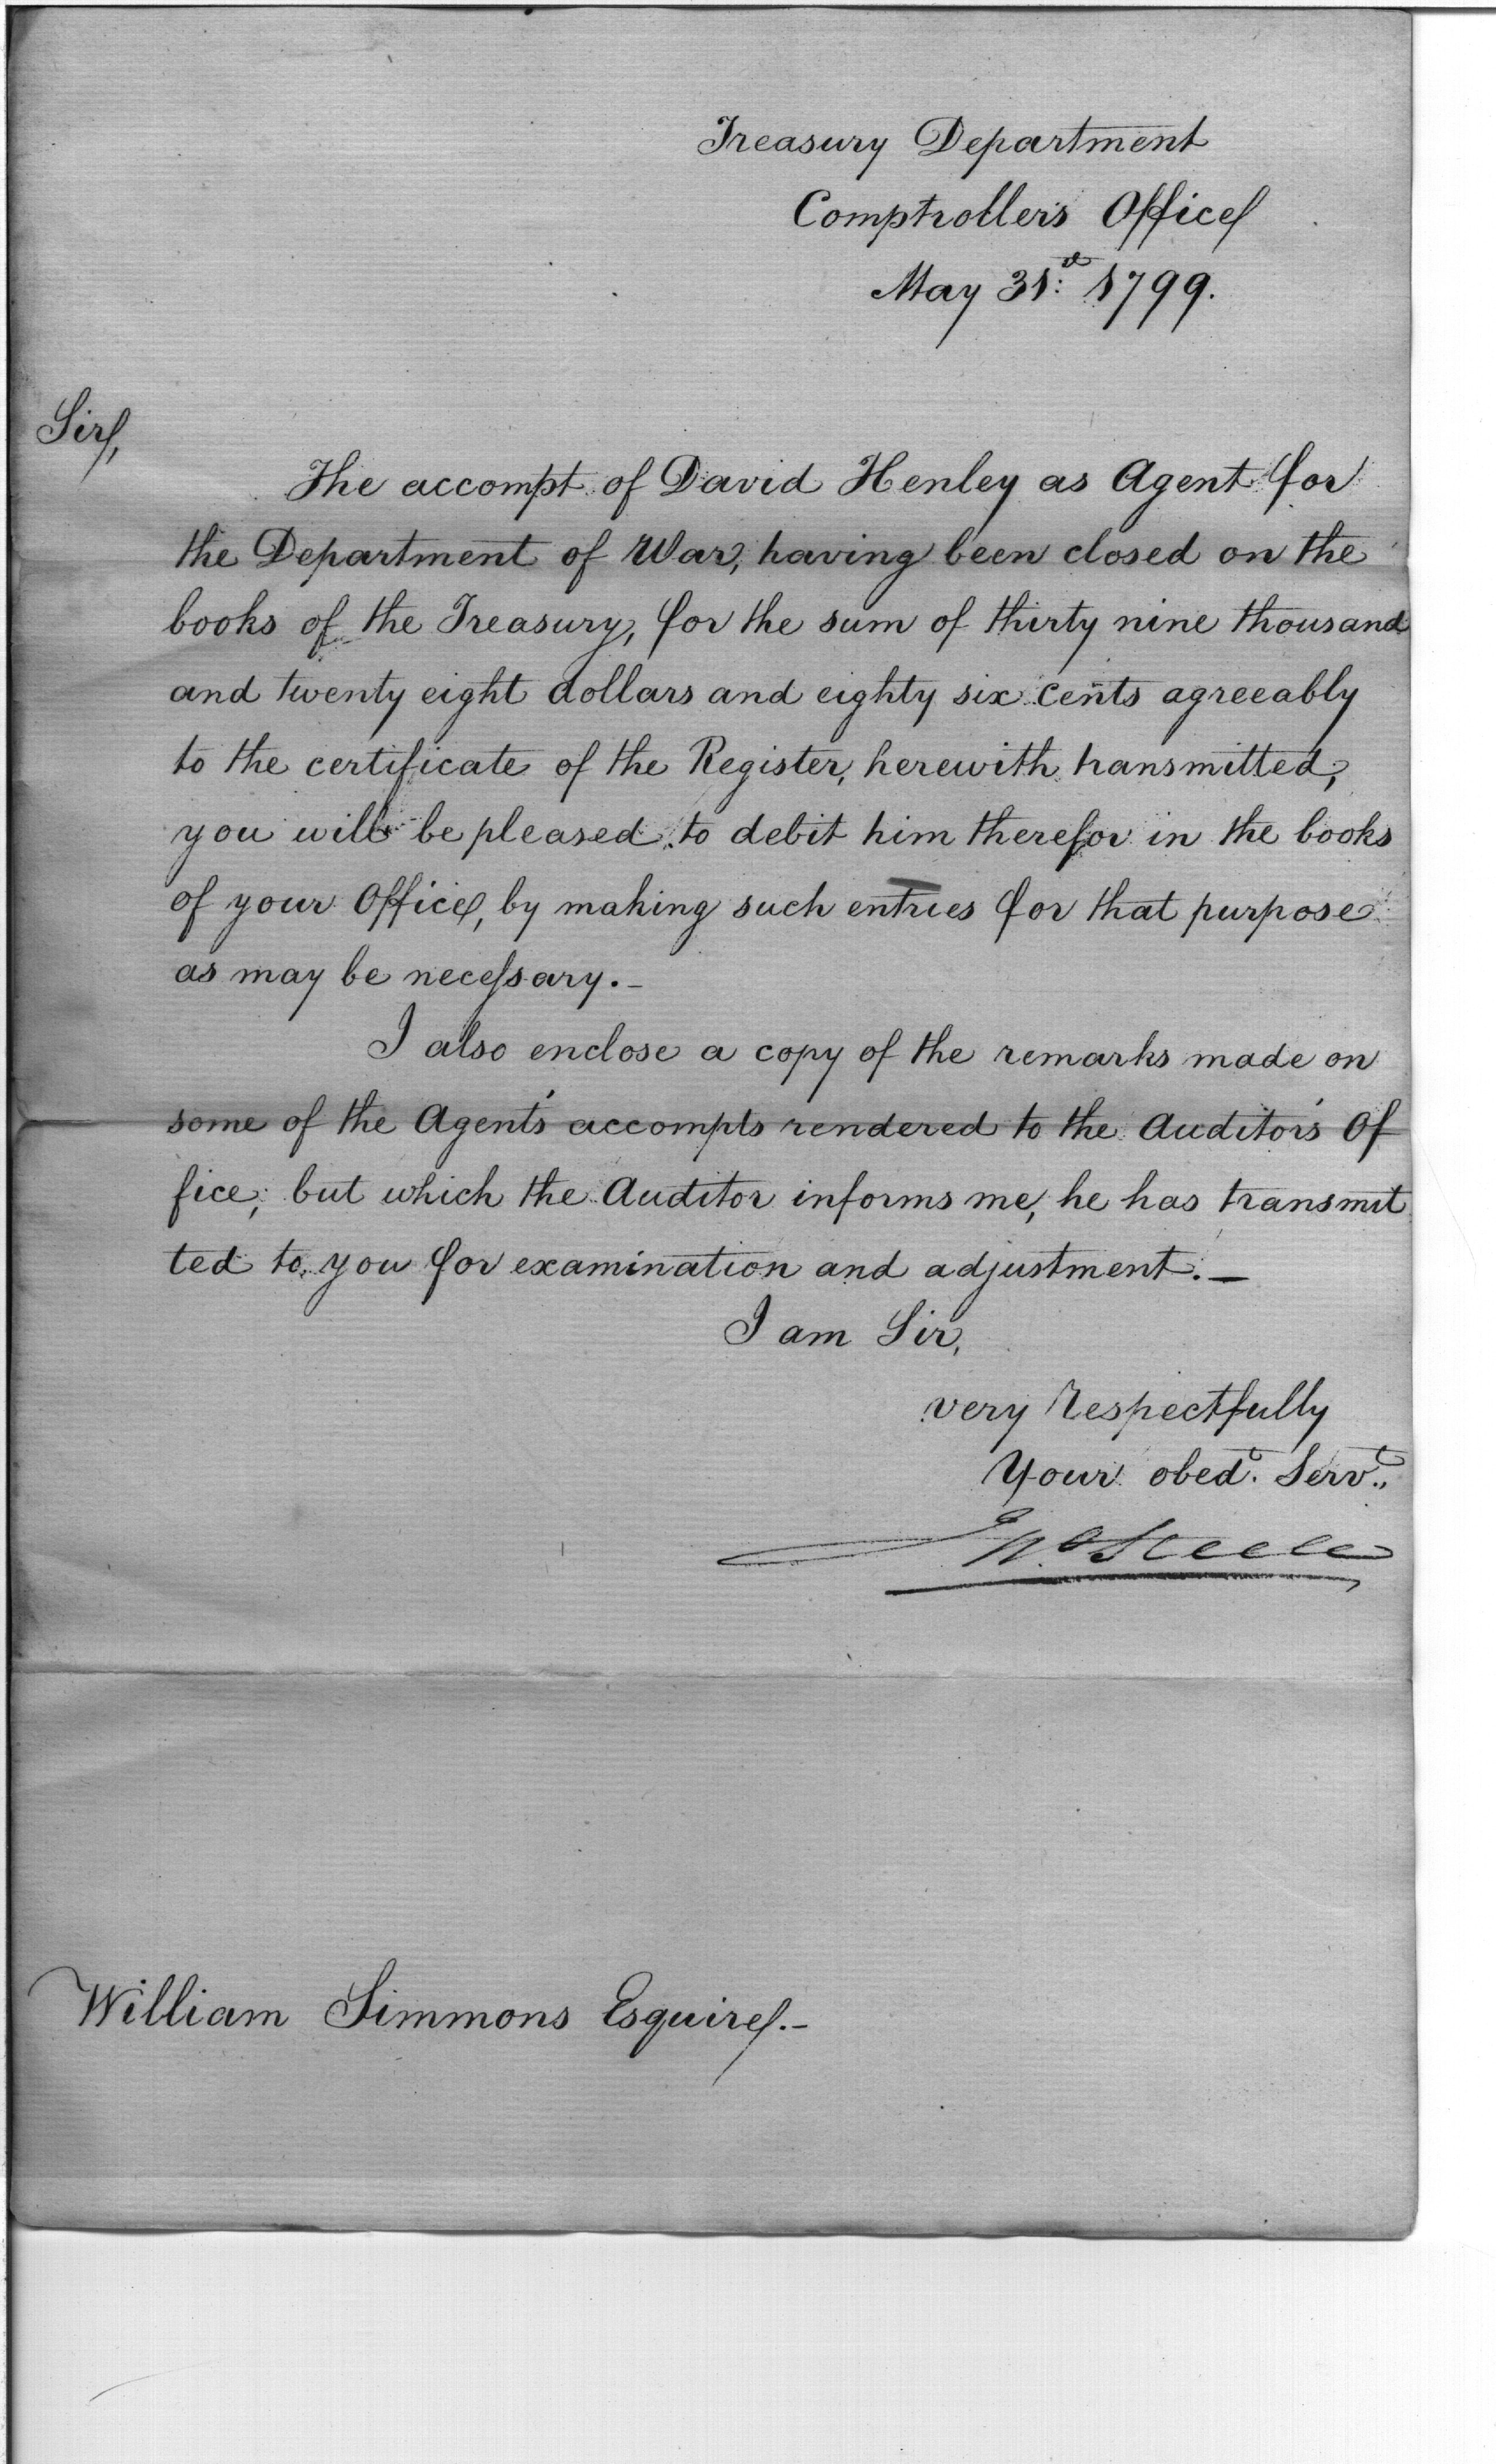 Treasury Department
Comptroller's Office
May 31st: 1799.
Sir,
The accompt of David Henley as Agent for
the Department of War, having been closed on the
books of the Treasury, for the sum of thirty nine thousand
and twenty eight dollars and eighty six cents agreeably
to the certificate of the Register, herewith transmitted,
you will be pleased to debit him therefor in the books
of your Office, by making such entries for that purpose
as may be necessary.-
I also enclose a copy of the remarks made on
some of the Agent's accompts rendered to the Auditor's Of
fice; but which the Auditor informs me, he has transmit
ted to you for examination and adjustment.—
I am Sir,
very respectfully
Your obedt. Servt.,
Jno Steele
William Simmons Esquire.-